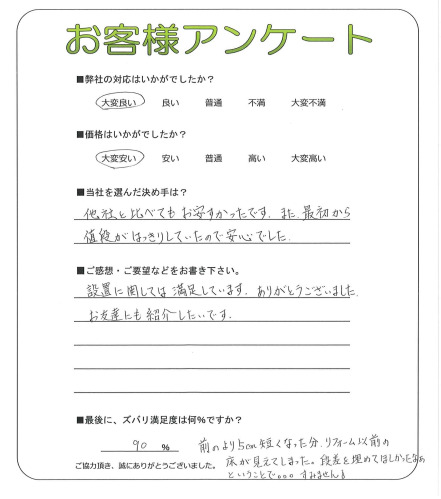 お客様アンケート
■弊社の対応はいかがでしたか?
大変良い 良い 普通 不満 大変不満
■価格はいかがでしたか?
大変安い 安い 普通 高い 大変高い
■当社を選んだ決め手は?
他社と比べてもお安すかったです。また、最初から
値段がはっきりしていたので安心でした。
■ご感想・ご要望などをお書き下さい。
設置に関しては満足しています。ありがとうございました。
お友達にも紹介したいです。
■最後に、ズバリ満足度は何%ですか?
90 %
前のより5cm短くなった分、リフォーム以前の
床が見えてしまった。段差を埋めてほしかったなぁ
ということで。。。すみません!
ご協力頂き、誠にありがとうございました。